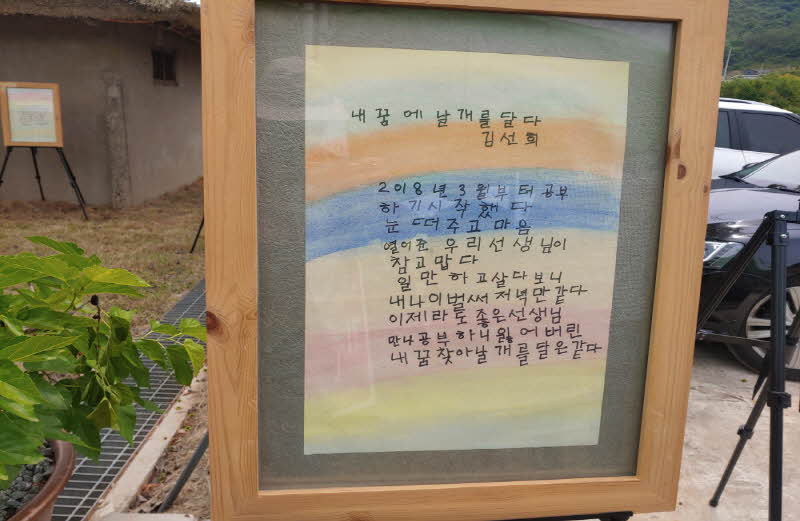 내 꿈에 날개를 달다
김선희
2018년 3월부터 공부
하기시작했다
눈 떠주고 마음
열어준 우리선생님이
참고맙다
일만하고살다보니
내나이벌써 저녁만같다
이제라도 좋은선생님
만나공부하니잃어버린
내꿈찾아날개를달은같다